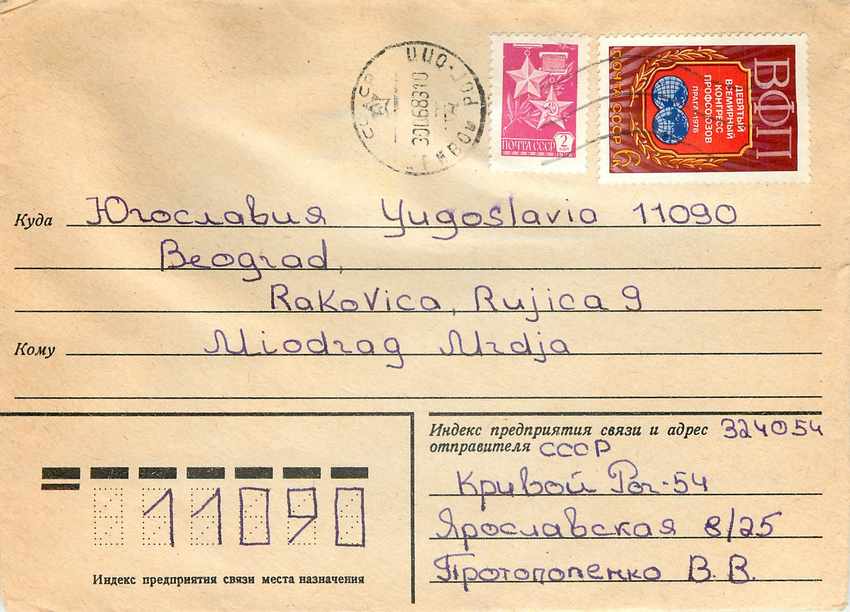 СССР
30068310
2
ПОЧТА СССР
ПОЧТА СССР
6к
ВФП
ДЕВЯТЫЙ
ВСЕМИРНЫЙ
КОНГРЕСС
ПРОФСОЮЗОВ
ПРАГА · 1978
Куда Югославия Yugoslavia 11090
Beograd,
Rakovica, Rujica 9
Кому Miodrag Mrdja
Индекс предприятия связи и адрес 324054
отправителя СССР
Кривой Рог-54
Ярославская 8/25
Протопопенко В. В.
11090
Индекс предприятия связи места назначения